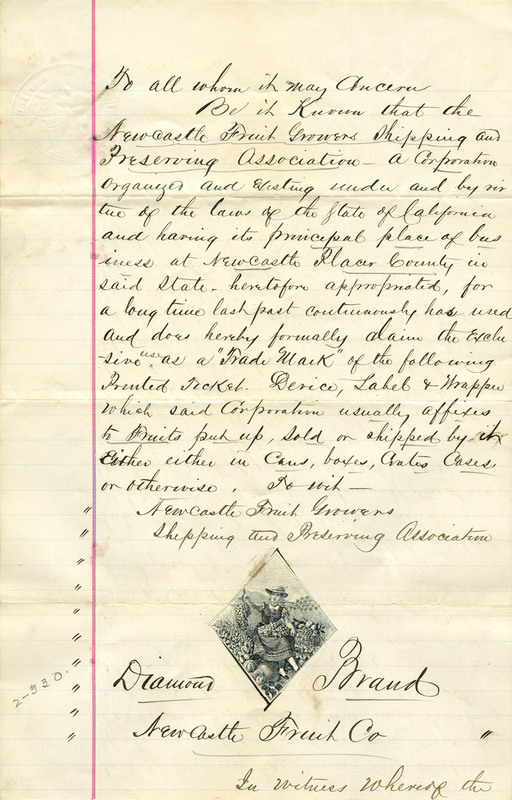 To all whom it may Concern
Be it Known that the
Newcastle Fruit Growers Shipping and
Preserving Association - a Corporation
Organized and Existing under and by vir
tue of the laws of the State of California
and having its principal place of bus
iness at Newcastle Placer County in
said State - heretofore appropriated, for
a long time last past continuously has used
and does hereby formally claim the Exclu
-sive use as a "Trade Mark" of the following
Printed Ticket. Device, Label & Wrapper
which said Corporation usually affixes
to Fruits put up, sold or shipped by it
either either in Cans, boxes, Crates Cases,
or otherwise, To wit -
" Newcastle Fruit Growers
" Shipping and Preserving Association
"
"
"
"
" Diamond Brand
2-330.
"
" Newcastle Fruit Co "
In Witness Whereof the